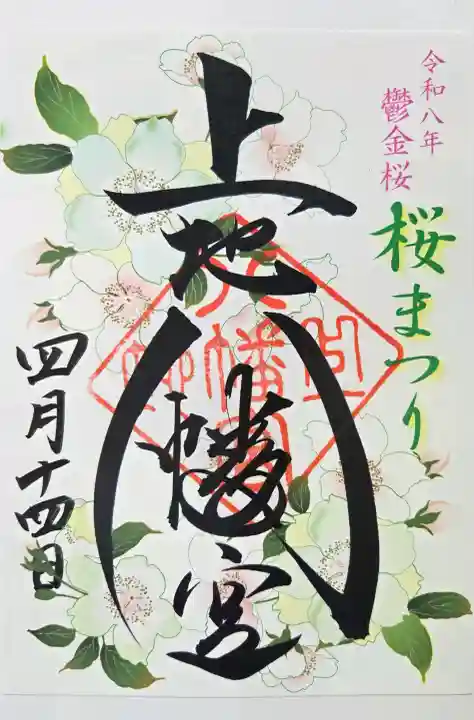 令和八年
鬱金桜
桜まつり
上地八幡宮
四月十四日